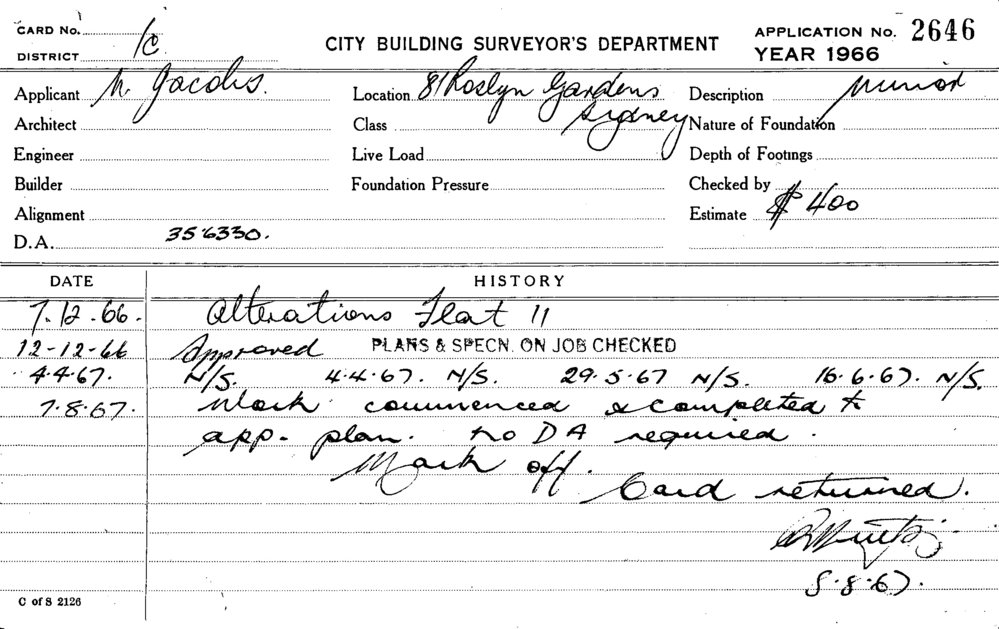 CARD No.
DISTRICT 1c
CITY BUILDING SURVEYOR'S DEPARTMENT
APPLICATION No. 2646
YEAR 1966
Applicant N. Jacobs.
Location 81 Roslyn Gardens
Sydney
Description Minor
Architect
Class
Nature of Foundation
Engineer
Live Load
Depth of Footings
Builder
Foundation Pressure
Checked by
Alignment
Estimate $ 400
D.A. 356330.
DATE HISTORY
7.12.66. Alterations Flat 11
12-12-66 Approved PLANS & SPECN. ON JOB CHECKED
4.4.67. N/S. 4.4.67. N/S. 29.5.67 N/S. 16.6.67. N/S.
7.8.67. Work commenced & completed to
app. plan. No DA required.
Mark off.
Card returned.
8.8.67.
C of S 2126